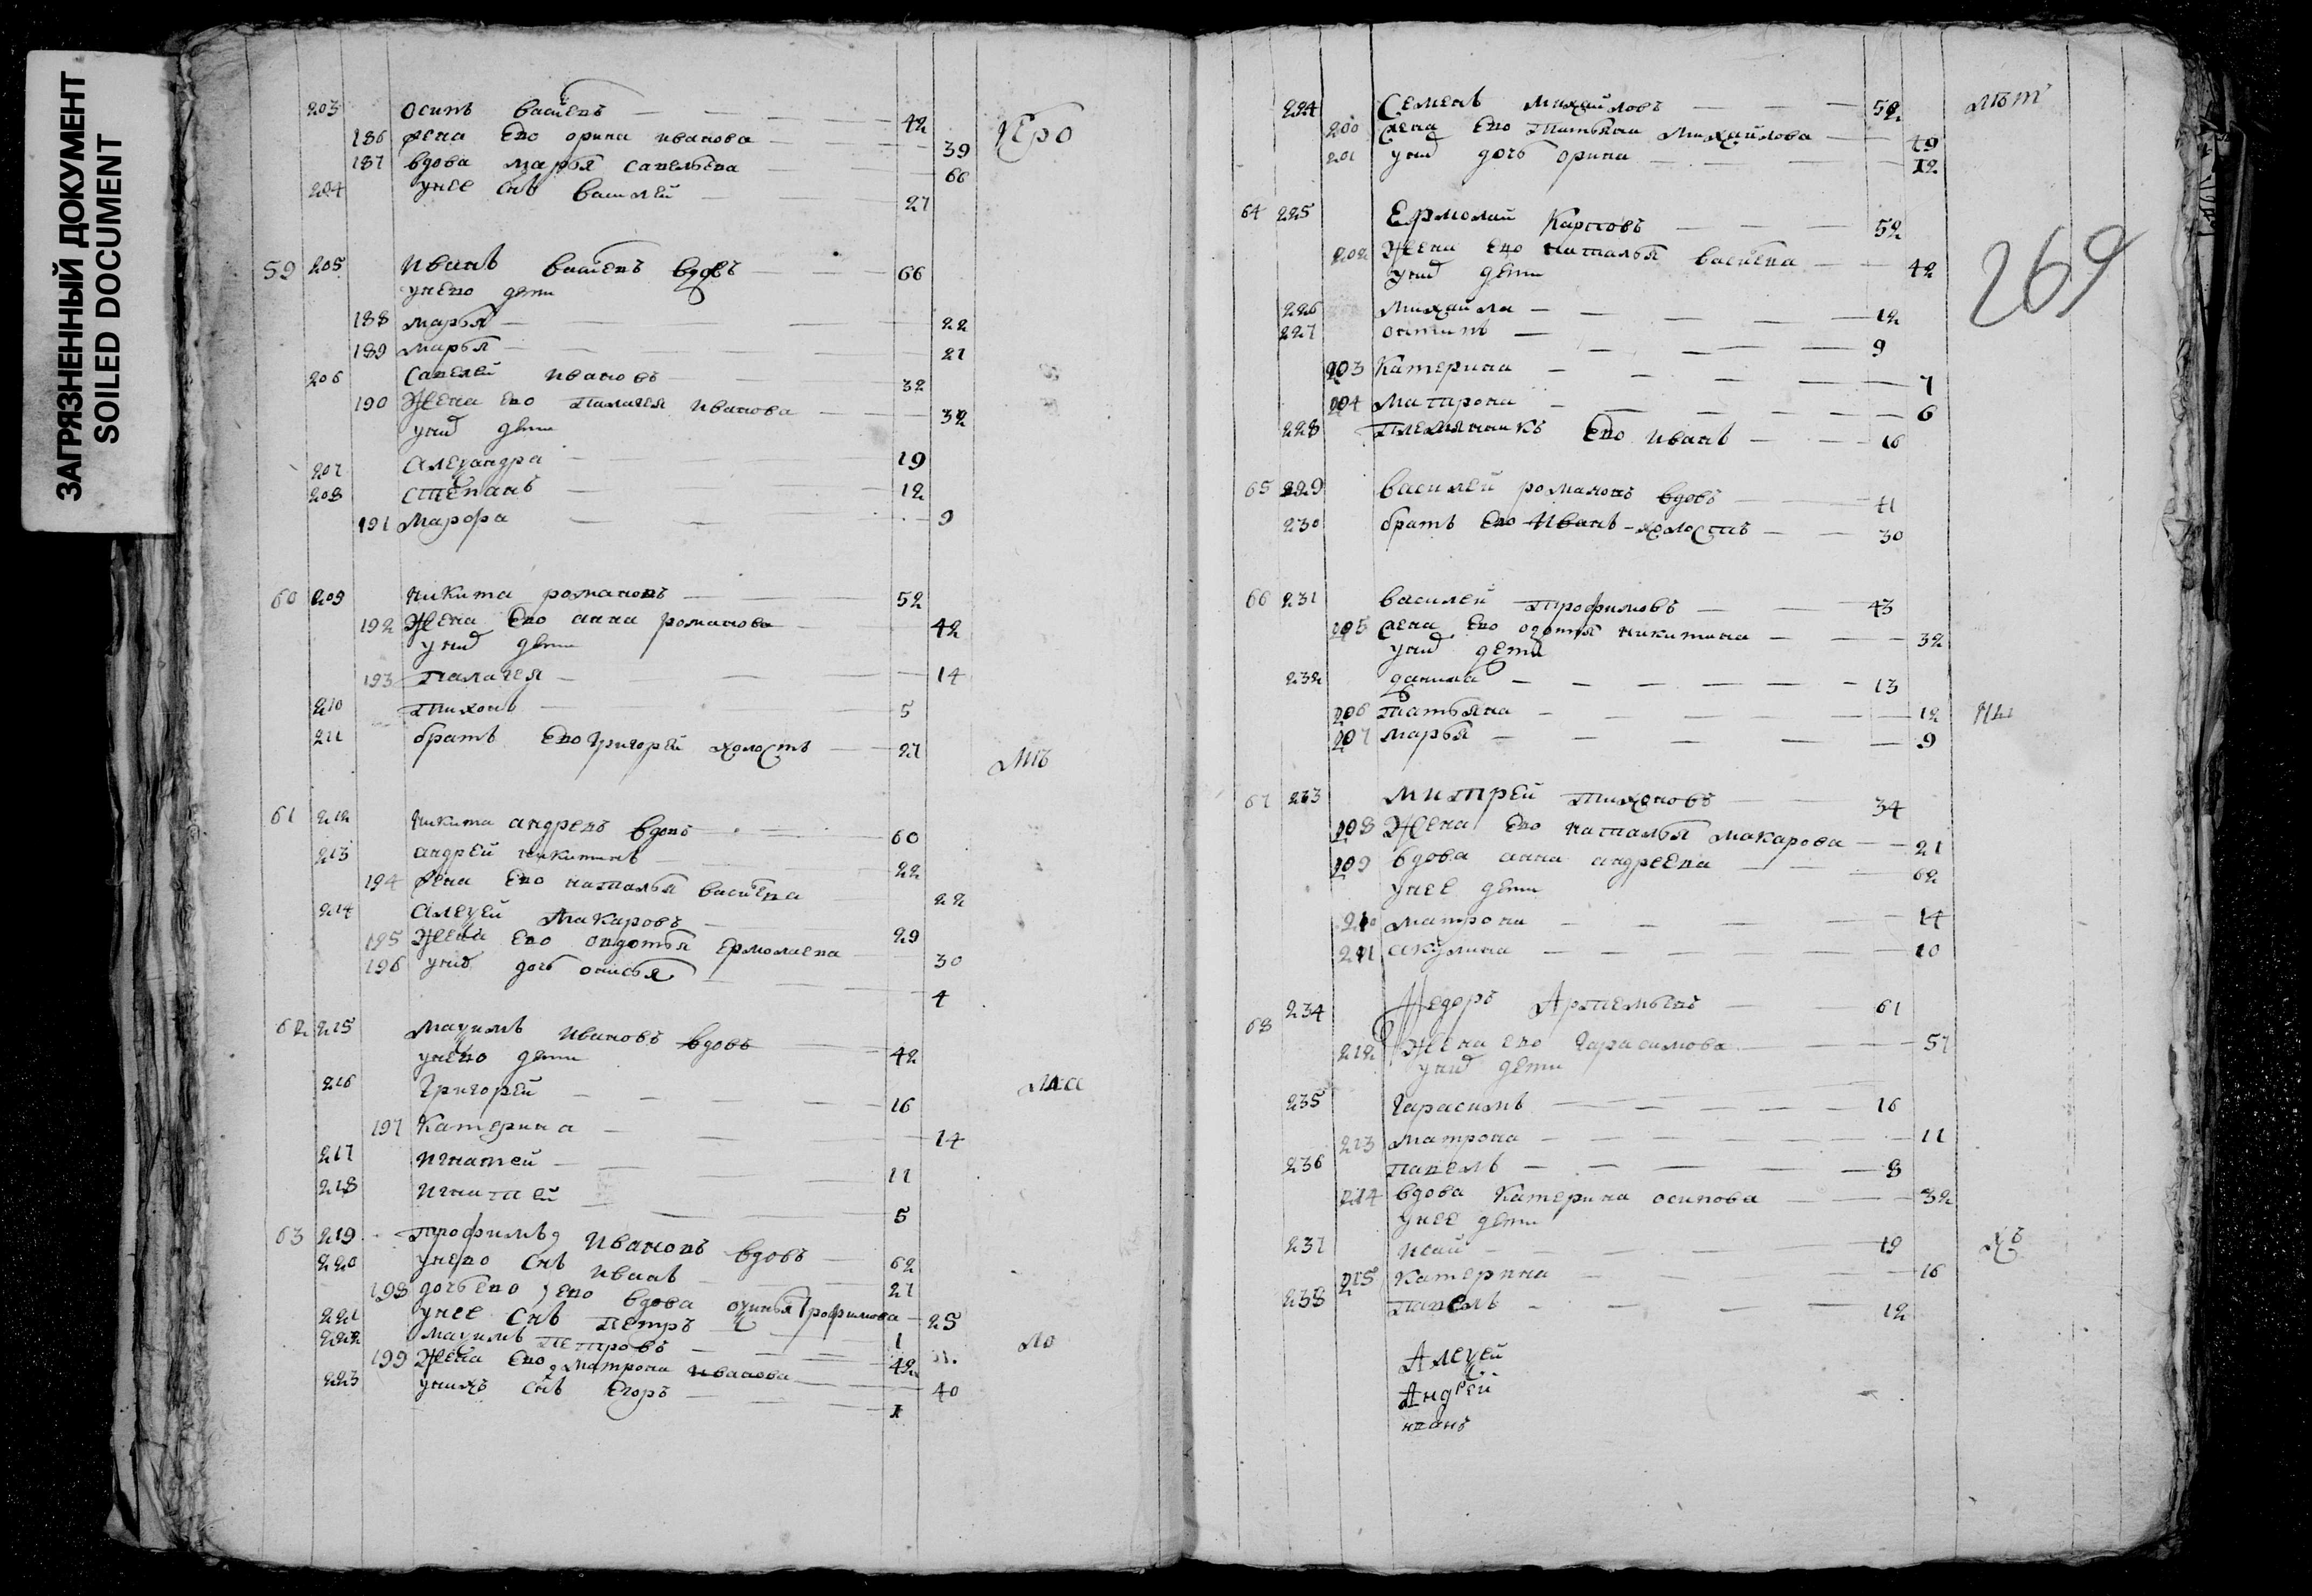 ЗАГРЯЗНЕННЫЙ ДОКУМЕНТ
SOILED DOCUMENT
203 осипъ васиlевъ 42
186 жена ево орина иванова 39
187 вдова марья савельева 66
204 унее снъ василей 27
59 205 иванъ васильевъ вдовъ 66
унево дети
188 марья 22
189 марья 21
206 савелей ивановъ 32
190 жена ево палагея иванова 32
уних дети
207 алеѯандра 19
208 степанъ 12
191 марфа 9
60 209 никита романовъ 52
192 жена ево анна романова 42
уних дети
193 палагея 14
210 тихонъ 5
211 братъ ево григорей холостъ 27
61 212 никита андревъ вдовъ 60
213 андрей никитинъ 22
194 жена ево наталья васильева 22
214 алеѯей макаровъ 29
195 жена ево овдотья ермолаева 30
196 уних дочь онисья 4
62 215 маѯимъ ивановъ вдовъ 42
унево дети
216 григорей 16
197 катерина 14
217 игнатей 11
218 игнатей 5
63 219 трофимъ ивановъ вдовъ 62
220 унево снъ иванъ 27
198 дочь ево вдова трофимова 25
221 унее снъ петръ 1
222 маѯимъ петровъ 42
199 жена ево матрона иванова 40
223 унихъ снъ егоръ 1
Черо
мъ
ма
ло
224 Семенъ михайловъ 52
200 жена ево татьяна михайлова 49
201 уних дочь орина 12
64 225 Ермолай Карповъ 52
202 жена ево наталья васильева 42
уних дети
226 михайла 12
227 9
203 катерина 7
204 матрона 6
228 племянникъ ево иванъ 16
65 229 василей романовъ вдовъ 41
230 братъ ево иванъ холостъ 30
66 231 василей трофимовъ 43
205 жена ево овдотья никитина 32
уних дети
232 данила 13
206 татьяна 12
207 марья 9
67 233 митрей тихоновъ 34
208 жена ево наталья макарова 21
209 вдова анна андреева 62
унее дети
210 матрона 14
211 акулина 10
68 234 Федоръ Артемьевъ 61
212 жена ево гарасимова 57
уних дети
235 гарасимъ 16
213 матрона 11
236 павелъ 8
214 вдова катерина осипова 32
унее дети
237 исай 19
215 катерина 16
238 павелъ 12
Алеѯей
Андрей
иванъ
лѣт
269